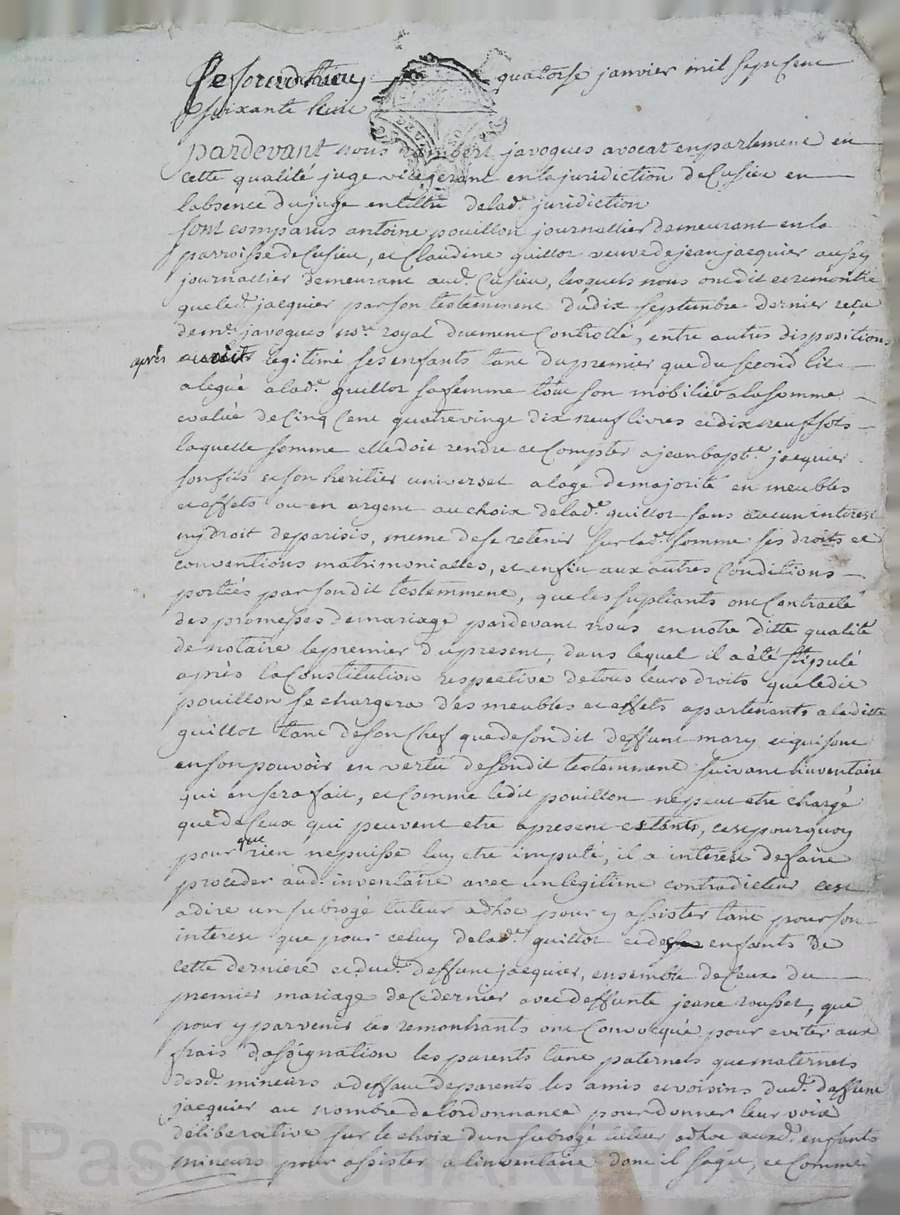 Ce jourdhuy quatorse janvier mil sept cent
soixante huit
pardevant nous rambert javogues avocat en parlement en
cette qualité juge vicegerant en la juridiction de Cusieu en
l'absence du juge en tiltre de lad. juridiction
sont comparus antoine pouillon journallier demeurant en la
parroisse de Cusieu, et Claudine guillot veuve de jean jacquier aussy
journallier demeurant aud. Cusieu, lesquels nous ont dit et remontré
que led. jacquier par son testemment du dix septembre dernier reçu
de me. javogues nore. royal duement Controllé, entre autres dispositions
après avoir legitimé ses enfants tant du premier que du second lit
a legué a lad. guillot sa femme tout son mobilier a la somme
evalué de Cinq Cent quatre vingt dix neuf livres et dix neuf sols
laquelle somme elle doit rendre et Compter a jean bapte. jacquier
son fils et son heritier universel a l'age de majorité en meubles
et effets ou en argent au choix de lad. guillot sans aucun interest
ny droit de parisis, meme de se retenir sur lad. somme ses droits et
conventions matrimonialles, et enfin aux autres Conditions
portées par son dit testemment, que les supliants ont Contracté
des promesses de mariage pardevant nous en notre ditte qualité
de notaire le premier du present, dans lequel il a été stipulé
après la Constitution respective de tous leurs droits que ledit
pouillon se chargera des meubles et effets apartenants a la ditte
guillot tant de son Chef que de son dit deffunt mary et qui sont
en son pouvoir en vertu de son dit testemment suivant l'inventaire
qui en sera fait, et Comme ledit pouillon ne peut etre chargé
que de Ceux qui peuvent etre a present estants, c'est pourquoy
pour que rien ne puisse luy etre imputé, il a interest de faire
proceder aud. inventaire avec un legitime contradicteur c'est
a dire un subrogé tuteur adhoc pour y assister tant pour son
interest que pour celuy de lad. guillot et des enfants de
cette derniere et dud. deffunt jacquier, ensemble de Ceux du
premier mariage de ce dernier avec deffunte jeane rousset, que
pour y parvenir les remontrants ont Convoqué pour eviter aux
frais d'assignation les parents tant paternels que maternels
desd. mineurs a deffaut de parents les amis et voisins dud. deffunt
jacquier au nombre de l'ordonnance pour donner leur voix
déliberative sur le choix d'un subrogé tuteur adhoc auxd. enfants
mineurs pour assister a l'inventaire dont il s'agit, et Comme
Pascal CHAREYRON